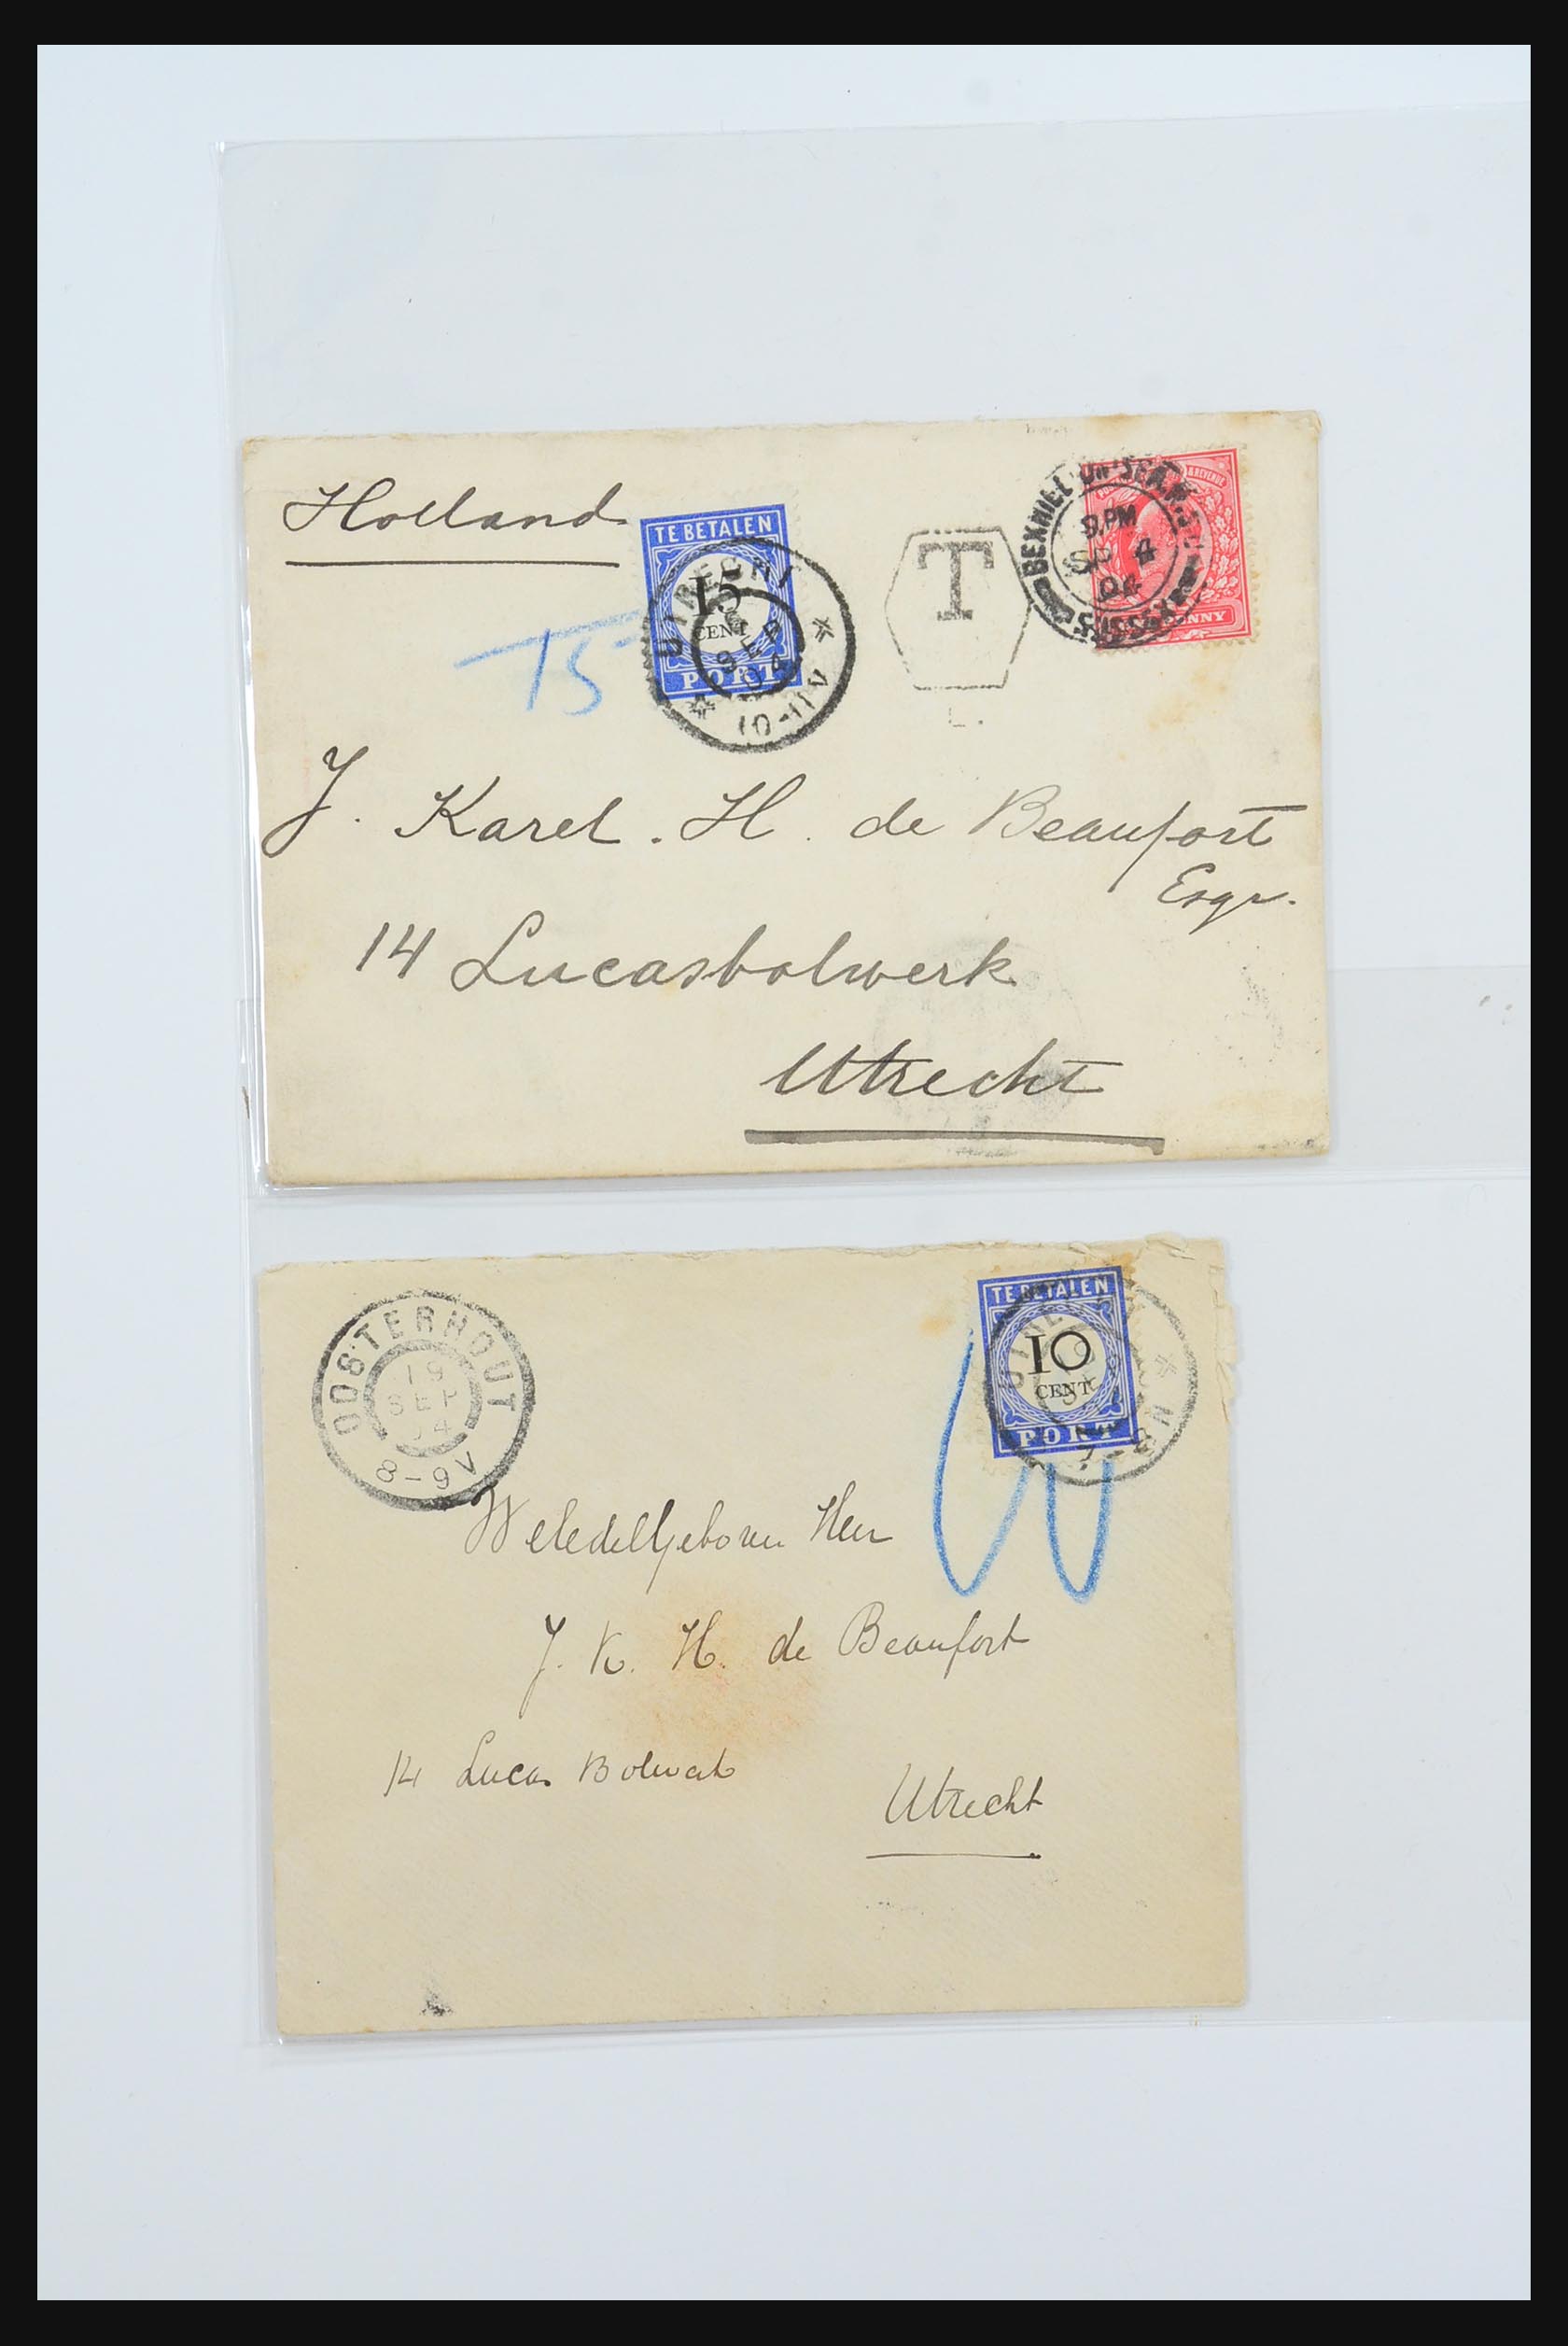 Holland
TE BETALEN
15
CENT
PORT
UTRECHT
6
SEP
04
10-11V
15
T
L.
BEXHILL ON SEA
9.PM
SP 4
04
SUSSEX
& REVENUE
PENNY
J. Karel. H. de Beaufort
Esqr.
14 Lucasbolwerk
Utrecht
OOSTERHOUT
19
SEP
04
8-9V
TE BETALEN
10
CENT
PORT
10
WelEdelGeboren Heer
J. K. H. de Beaufort
14 Lucas Bolwerk
Utrecht